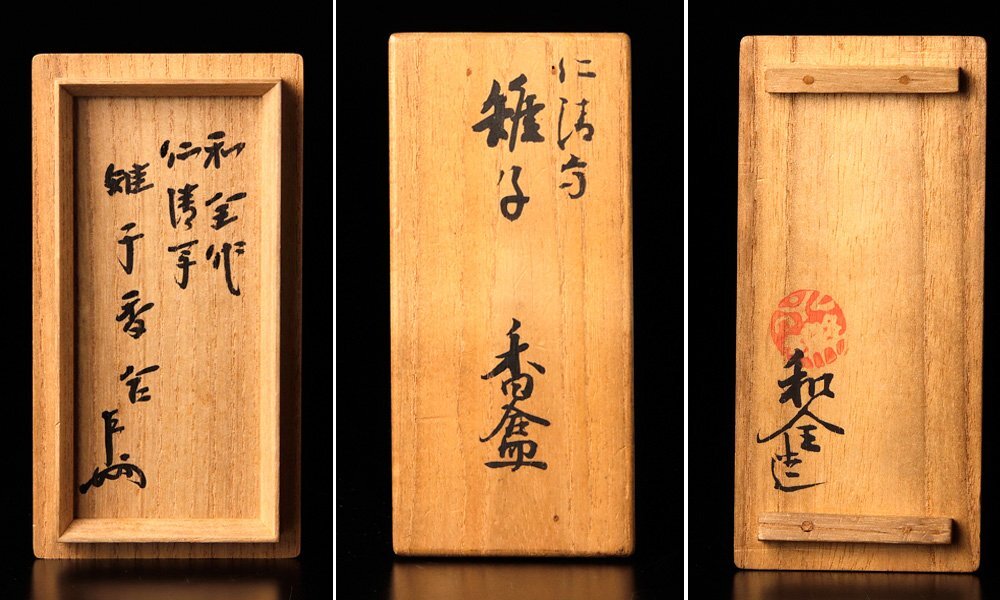 和全作
仁清写
雉子香合
仁清写
雉子
香盒
和全造